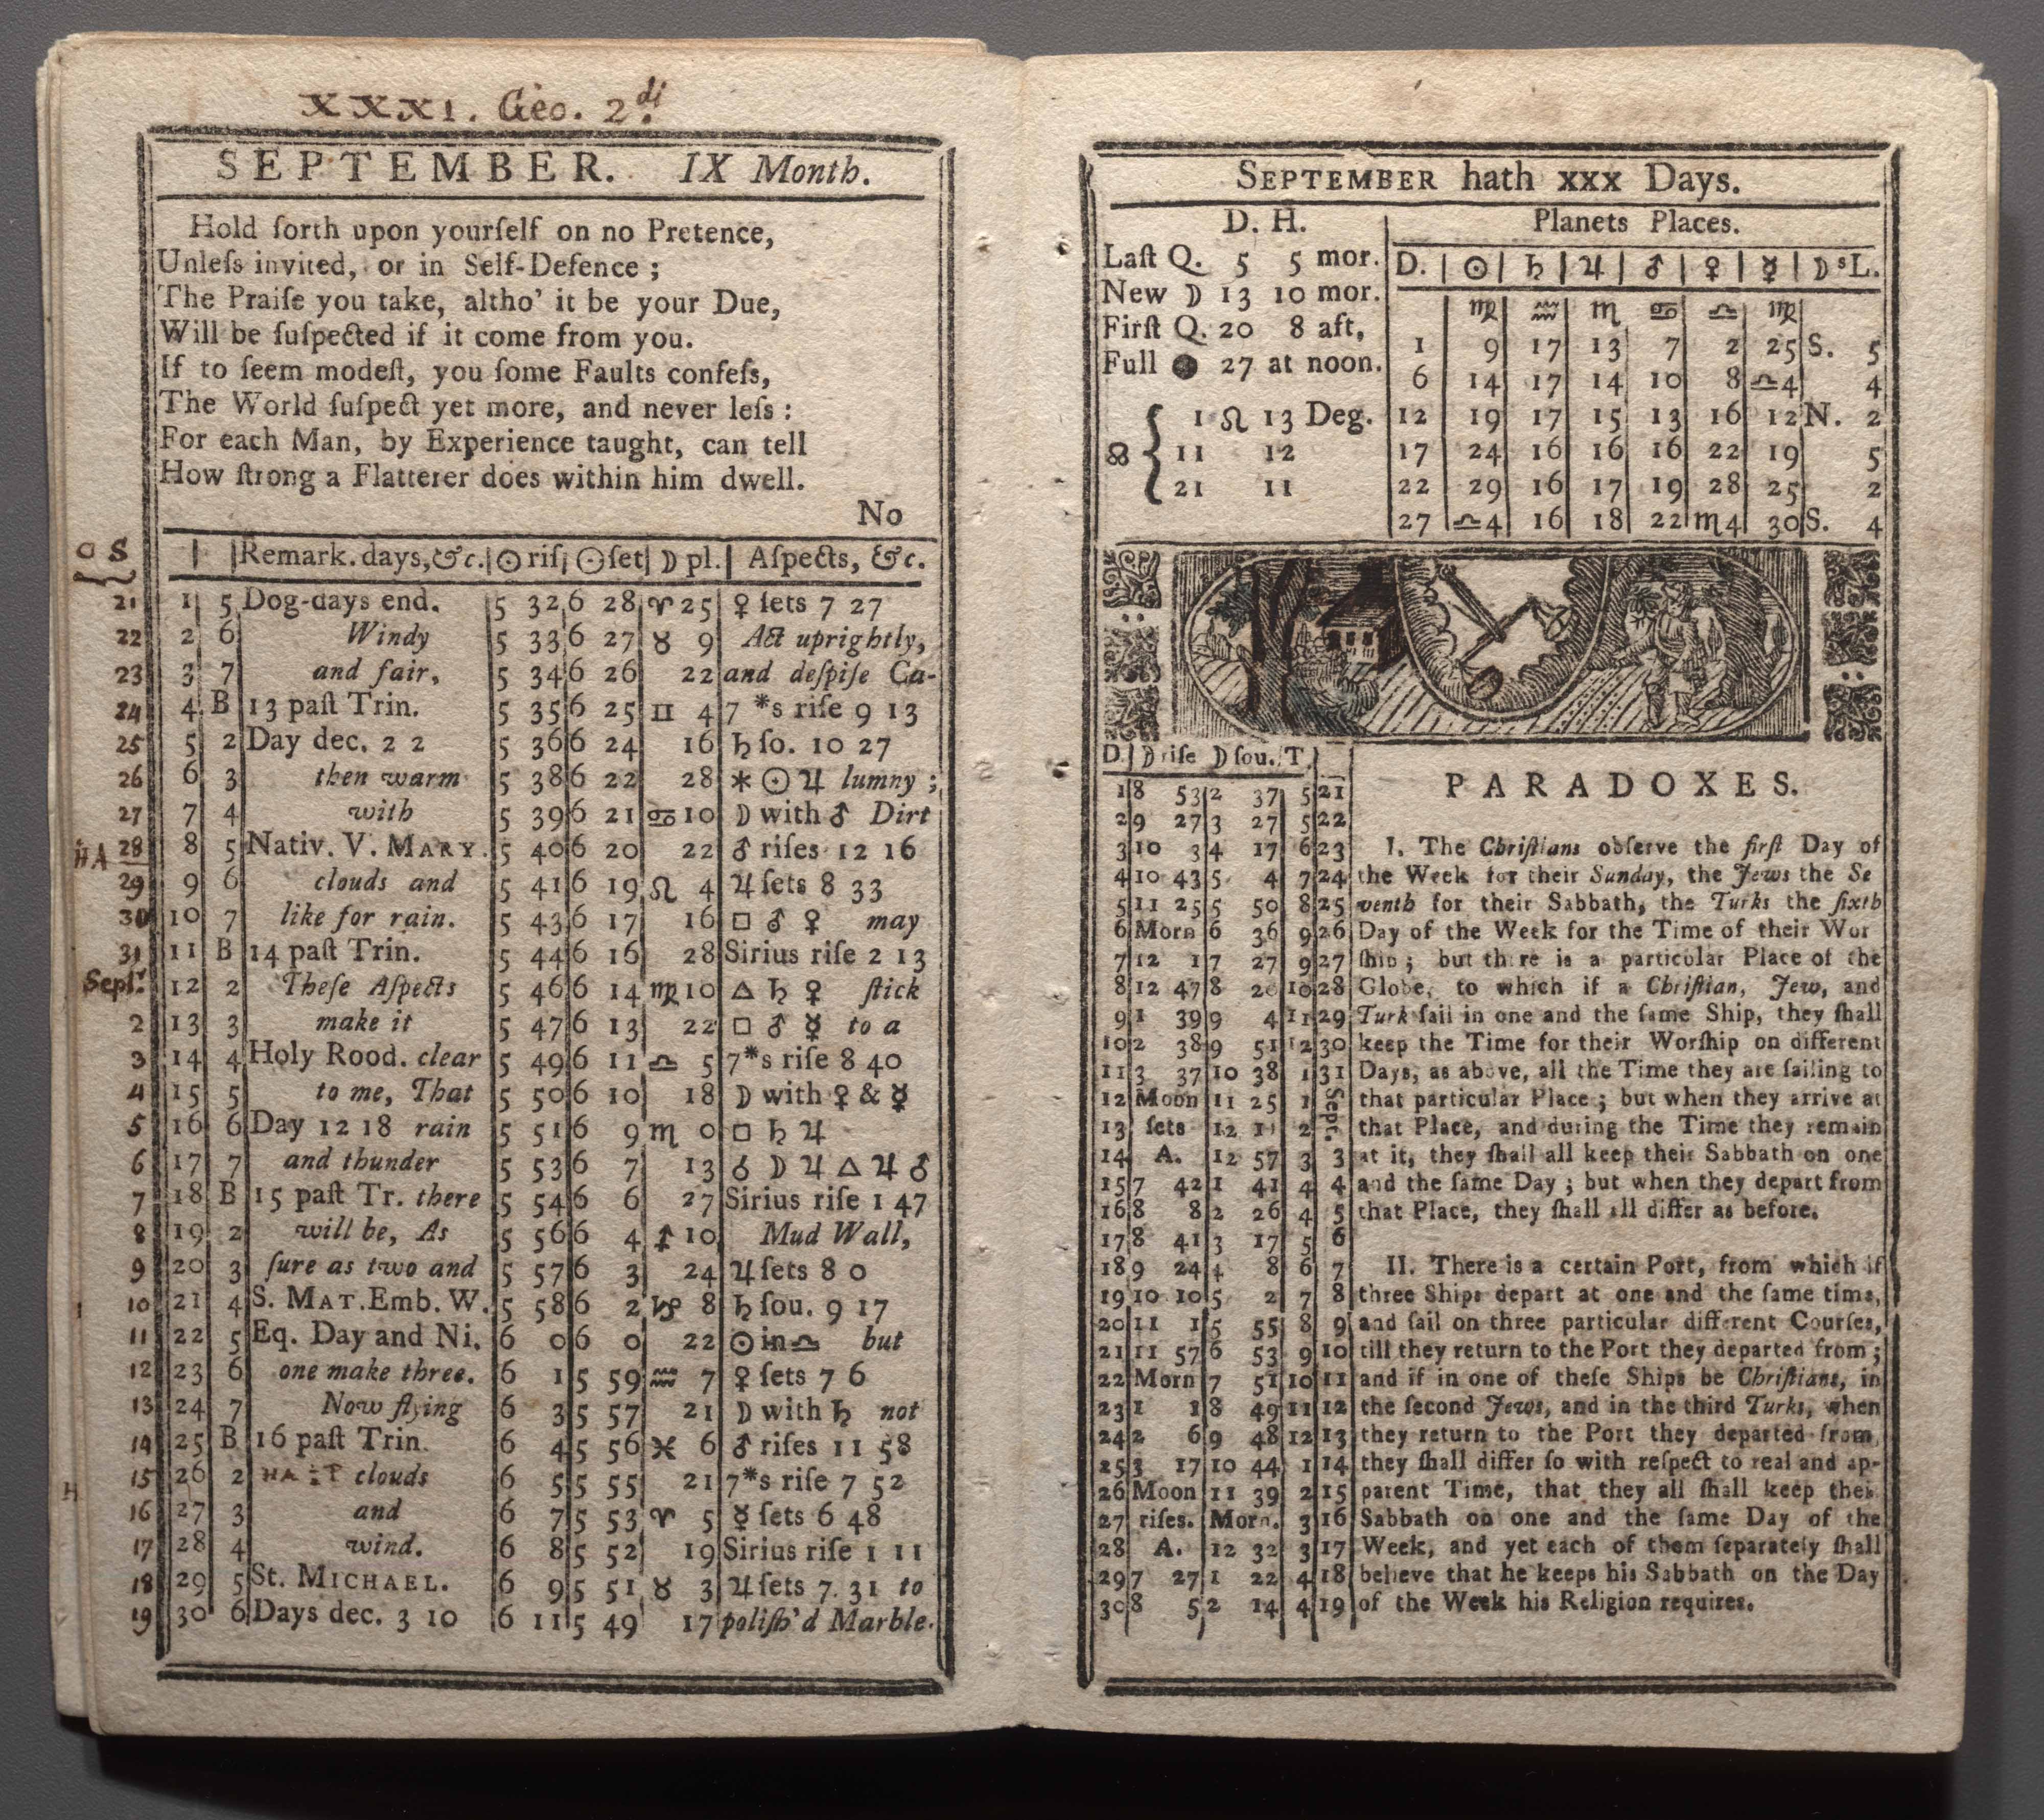 XXXI. Geo. 2di.
SEPTEMBER. IX Month.
Hold forth upon yourſelf on no Pretence,
Unleſs invited, or in Self-Defence ;
The Praiſe you take, altho' it be your Due,
Will be ſuſpected if it come from you.
If to ſeem modeſt, you ſome Faults confeſs,
The World ſuſpect yet more, and never leſs :
For each Man, by Experience taught, can tell
How ſtrong a Flatterer does within him dwell.
No
O S
Remark. days, &c. ☉ riſ ☉ ſet ☽ pl. Aſpects, &c.
21 1 5 Dog-days end. 5 32 6 28 ♈ 25 ♀ ſets 7 27
22 2 6 Windy 5 33 6 27 ♉ 9 Act uprightly,
23 3 7 and fair, 5 34 6 26 22 and deſpiſe Ca-
24 4 B 13 paſt Trin. 5 35 6 25 ♊ 4 7 *s riſe 9 13
25 5 2 Day dec. 2 2 5 36 6 24 16 ♄ ſo. 10 27
26 6 3 then warm 5 38 6 22 28 ⚹ ☉ ♃ lumny ;
27 7 4 with 5 39 6 21 ♋ 10 ☽ with ♂ Dirt
HA 28 8 5 Nativ. V. MARY. 5 40 6 20 22 ♂ riſes 12 16
29 9 6 clouds and 5 41 6 19 ♌ 4 ♃ ſets 8 33
30 10 7 like for rain. 5 43 6 17 16 □ ♂ ♀ may
31 11 B 14 paſt Trin. 5 44 6 16 28 Sirius riſe 2 13
Septr. 12 2 Theſe Aſpects 5 46 6 14 ♍ 10 △ ♄ ♀ ſtick
2 13 3 make it 5 47 6 13 22 □ ♂ ☿ to a
3 14 4 Holy Rood. clear 5 49 6 11 ♎ 5 7*s riſe 8 40
4 15 5 to me, That 5 50 6 10 18 ☽ with ♀ & ☿
5 16 6 Day 12 18 rain 5 51 6 9 ♏ 0 □ ♄ ♃
6 17 7 and thunder 5 53 6 7 13 ☌ ☽ ♃ △ ♃ ♂
7 18 B 15 paſt Tr. there 5 54 6 6 27 Sirius riſe 1 47
8 19 2 will be, As 5 56 6 4 ♐ 10 Mud Wall,
9 20 3 ſure as two and 5 57 6 3 24 ♃ ſets 8 0
10 21 4 S. MAT. Emb. W. 5 58 6 2 ♑ 8 ♄ ſou. 9 17
11 22 5 Eq. Day and Ni. 6 0 6 0 22 ☉ in ♎ but
12 23 6 one make three. 6 1 5 59 ♒ 7 ♀ ſets 7 6
13 24 7 Now flying 6 3 5 57 21 ☽ with ♄ not
14 25 B 16 paſt Trin. 6 4 5 56 ♓ 6 ♂ riſes 11 58
15 26 2 clouds 6 5 5 55 21 7*s riſe 7 52
H 16 27 3 and 6 7 5 53 ♈ 5 ☿ ſets 6 48
17 28 4 wind. 6 8 5 52 19 Sirius riſe 1 11
18 29 5 St. MICHAEL. 6 9 5 51 ♉ 3 ♃ ſets 7 31 to
19 30 6 Days dec. 3 10 6 11 5 49 17 poliſh'd Marble.
SEPTEMBER hath XXX Days.
D. H.
Laſt Q. 5 5 mor.
New ☽ 13 10 mor.
Firſt Q. 20 8 aft,
Full ● 27 at noon.
☊ { 1 ♌ 13 Deg.
11 12
21 11
Planets Places.
D. ☉ ♄ ♃ ♂ ♀ ☿ ☽ sL.
♍ ♒ ♏ ♋ ♎ ♍
1 9 17 13 7 2 25 S. 5
6 14 17 14 10 8 ♎4 4
12 19 17 15 13 16 12 N. 2
17 24 16 16 16 22 19 5
22 29 16 17 19 28 25 2
27 ♎4 16 18 22 ♏4 30 S. 4
D. ☽ riſe ☽ ſou. T.
1 8 53 2 37 5 21
2 9 27 3 27 5 22
3 10 3 4 17 6 23
4 10 43 5 4 7 24
5 11 25 5 50 8 25
6 Morn 6 36 9 26
7 12 1 7 27 9 27
8 12 47 8 20 10 28
9 1 39 9 4 11 29
10 2 38 9 51 12 30
11 3 37 10 38 1 31
12 Moon 11 25 1 Sept.
13 ſets 12 11 2 2
14 A. 12 57 3 3
15 7 42 1 41 4 4
16 8 8 2 26 4 5
17 8 41 3 17 5 6
18 9 24 4 8 6 7
19 10 10 5 2 7 8
20 11 1 5 55 8 9
21 11 57 6 53 9 10
22 Morn 7 51 10 11
23 1 1 8 49 11 12
24 2 6 9 48 12 13
25 3 17 10 44 1 14
26 Moon 11 39 2 15
27 riſes. Morn. 3 16
28 A. 12 32 3 17
29 7 27 1 22 4 18
30 8 5 2 14 4 19
PARADOXES.
I. The Chriſtians obſerve the firſt Day of
the Week for their Sunday, the Jews the Se
venth for their Sabbath, the Turks the ſixth
Day of the Week for the Time of their Wor
ſhip ; but there is a particular Place of the
Globe, to which if a Chriſtian, Jew, and
Turk ſail in one and the ſame Ship, they ſhall
keep the Time for their Worſhip on different
Days, as above, all the Time they are ſailing to
that particular Place ; but when they arrive at
that Place, and during the Time they remain
at it, they ſhall all keep their Sabbath on one
and the ſame Day ; but when they depart from
that Place, they ſhall all differ as before.
II. There is a certain Port, from which if
three Ships depart at one and the ſame time,
and ſail on three particular different Courſes,
till they return to the Port they departed from ;
and if in one of theſe Ships be Chriſtians, in
the ſecond Jews, and in the third Turks, when
they return to the Port they departed from,
they ſhall differ ſo with reſpect to real and ap-
parent Time, that they all ſhall keep their
Sabbath on one and the ſame Day of the
Week, and yet each of them ſeparately ſhall
believe that he keeps his Sabbath on the Day
of the Week his Religion requires.